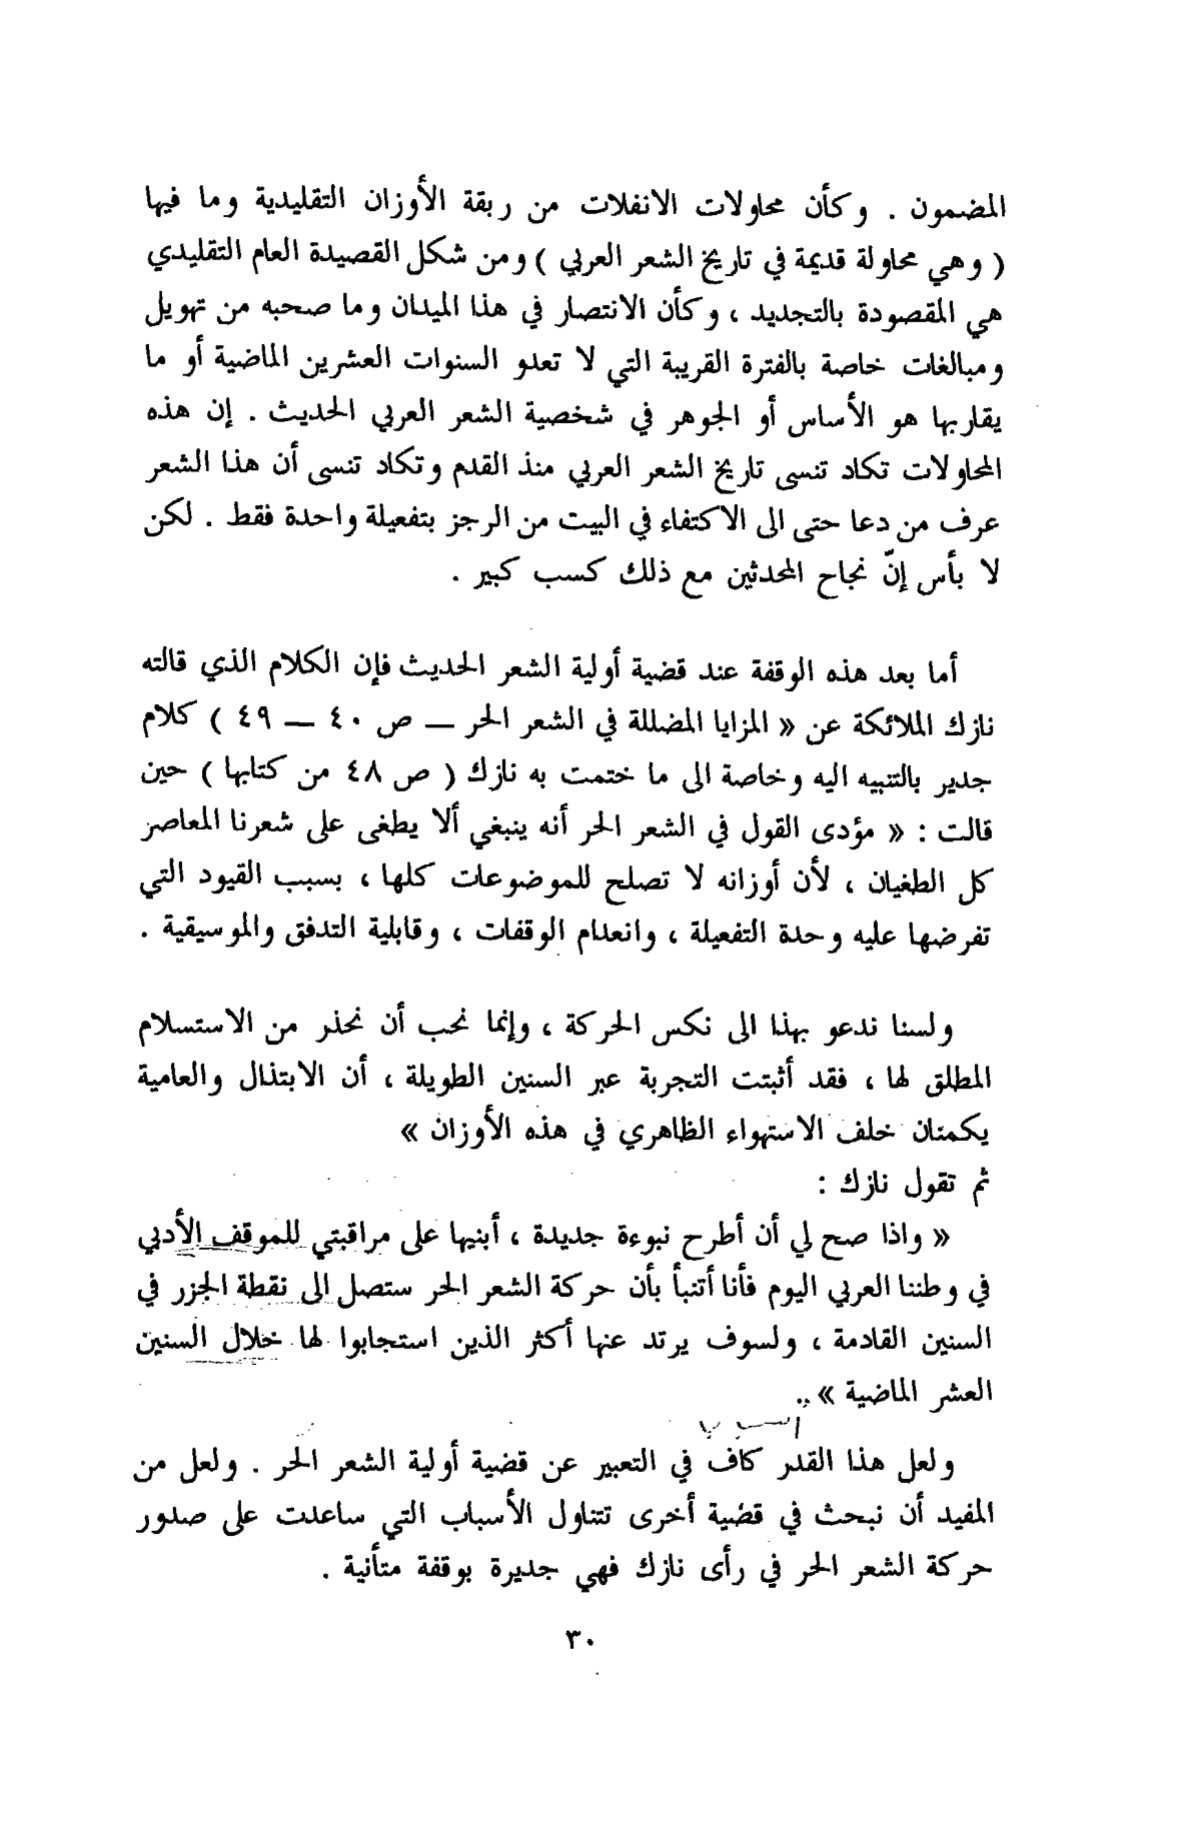 المضمون . وكأن محاولات الانفلات من ربقة الأوزان التقليدية وما فيها
( وهي محاولة قديمة في تاريخ الشعر العربي ) ومن شكل القصيدة العام التقليدي
هي المقصودة بالتجديد ، وكأن الانتصار في هذا الميدان وما صحبه من تهويل
ومبالغات خاصة بالفترة القريبة التي لا تعدو السنوات العشرين الماضية أو ما
يقاربها هو الأساس أو الجوهر في شخصية الشعر العربي الحديث . إن هذه
المحاولات تكاد تنسى تاريخ الشعر العربي منذ القدم وتكاد تنسى أن هذا الشعر
عرف من دعا حتى الى الاكتفاء في البيت من الرجز بتفعيلة واحدة فقط . لكن
لا بأس إنّ نجاح المحدثين مع ذلك كسب كبير .
أما بعد هذه الوقفة عند قضية أولية الشعر الحديث فإن الكلام الذي قالته
نازك الملائكة عن « المزايا المضللة في الشعر الحر – ص ٤٠ – ٤٩ ) كلام
جدير بالتنبيه اليه وخاصة الى ما ختمت به نازك ( ص ٤٨ من كتابها ) حين
قالت : « مؤدى القول في الشعر الحر أنه ينبغي ألا يطغى على شعرنا المعاصر
كل الطغيان ، لأن أوزانه لا تصلح للموضوعات كلها ، بسبب القيود التي
تفرضها عليه وحدة التفعيلة ، وانعدام الوقفات ، وقابلية التدفق والموسيقية .
ولسنا ندعو بهذا الى نكس الحركة ، وإنما نحب أن نحذر من الاستسلام
المطلق لها ، فقد أثبتت التجربة عبر السنين الطويلة ، أن الابتذال والعامية
يكمنان خلف الاستهواء الظاهري في هذه الأوزان »
ثم تقول نازك :
« واذا صح لي أن أطرح نبوءة جديدة ، أبنيها على مراقبتي للموقف الأدبي
في وطننا العربي اليوم فأنا أتنبأ بأن حركة الشعر الحر ستصل الى نقطة الجزر في
السنين القادمة ، ولسوف يرتد عنها أكثر الذين استجابوا لها خلال السنين
العشر الماضية » ..
ولعل هذا القدر كاف في التعبير عن قضية أولية الشعر الحر . ولعل من
المفيد أن نبحث في قضية أخرى تتناول الأسباب التي ساعدت على صدور
حركة الشعر الحر في رأى نازك فهي جديرة بوقفة متأنية .
٣٠